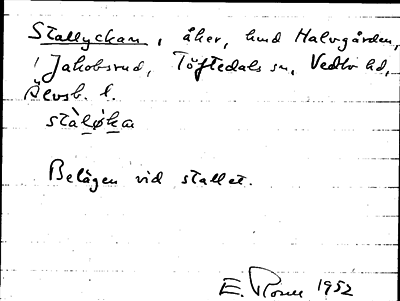 Stallyckan, åker, hmd Halvgården,
i Jakobsrud, Töftedals sn, Vedbo hd,
Älvsb. l.
stàløka
Belägen vid stallet.
E. 1952